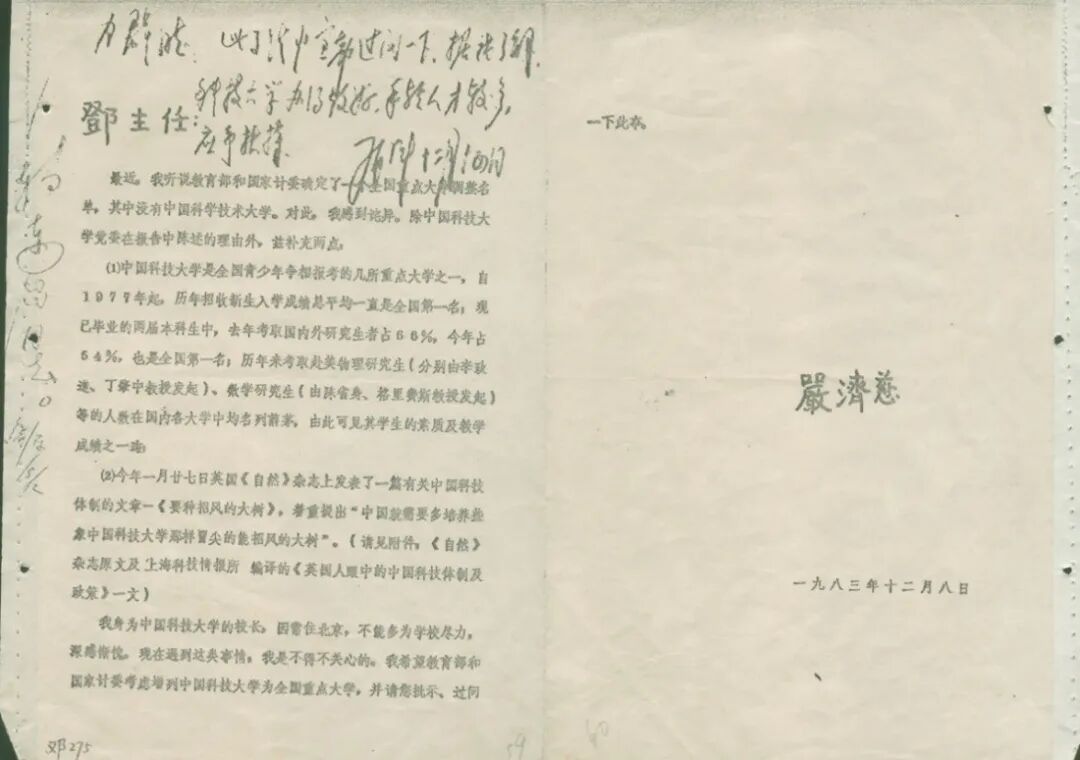 力群
此事请中宣部过问一下。据我了解，
科技大学办得较好，年轻人才较多，
应予扶持。
十二月
鄧主任：
最近，我听说教育部和国家计委确定了一个全国重点大学调整名
单，其中没有中国科学技术大学。对此，我感到诧异。除中国科技大
学党委在报告中陈述的理由外，兹补充两点：
(1)中国科技大学是全国青少年争相报考的几所重点大学之一，自
1977年起，历年招收新生入学成绩总平均一直是全国第一名；现
已毕业的两届本科生中，去年考取国内外研究生者占66%，今年占
64%，也是全国第一名；历年来考取赴美物理研究生（分别由李政
道、丁肇中教授发起）、数学研究生（由陈省身、格里费斯教授发起）
等的人数在国内各大学中均名列前茅，由此可见其学生的素质及教学
成绩之一斑；
(2)今年一月廿七日英国《自然》杂志上发表了一篇有关中国科技
体制的文章—《要种招风的大树》，着重提出“中国就需要多培养些
象中国科技大学那样冒尖的能招风的大树”。（请见附件：《自然》
杂志原文及上海科技情报所 编译的《英国人眼中的中国科技体制及
政策》一文）
我身为中国科技大学的校长，因常住北京，不能多为学校尽力，
深感惭愧。现在遇到这类事情，我是不得不关心的。我希望教育部和
国家计委考虑增列中国科技大学为全国重点大学，并请您批示、过问
邓275
59
一下此事。
嚴濟慈
一九八三年十二月八日
60